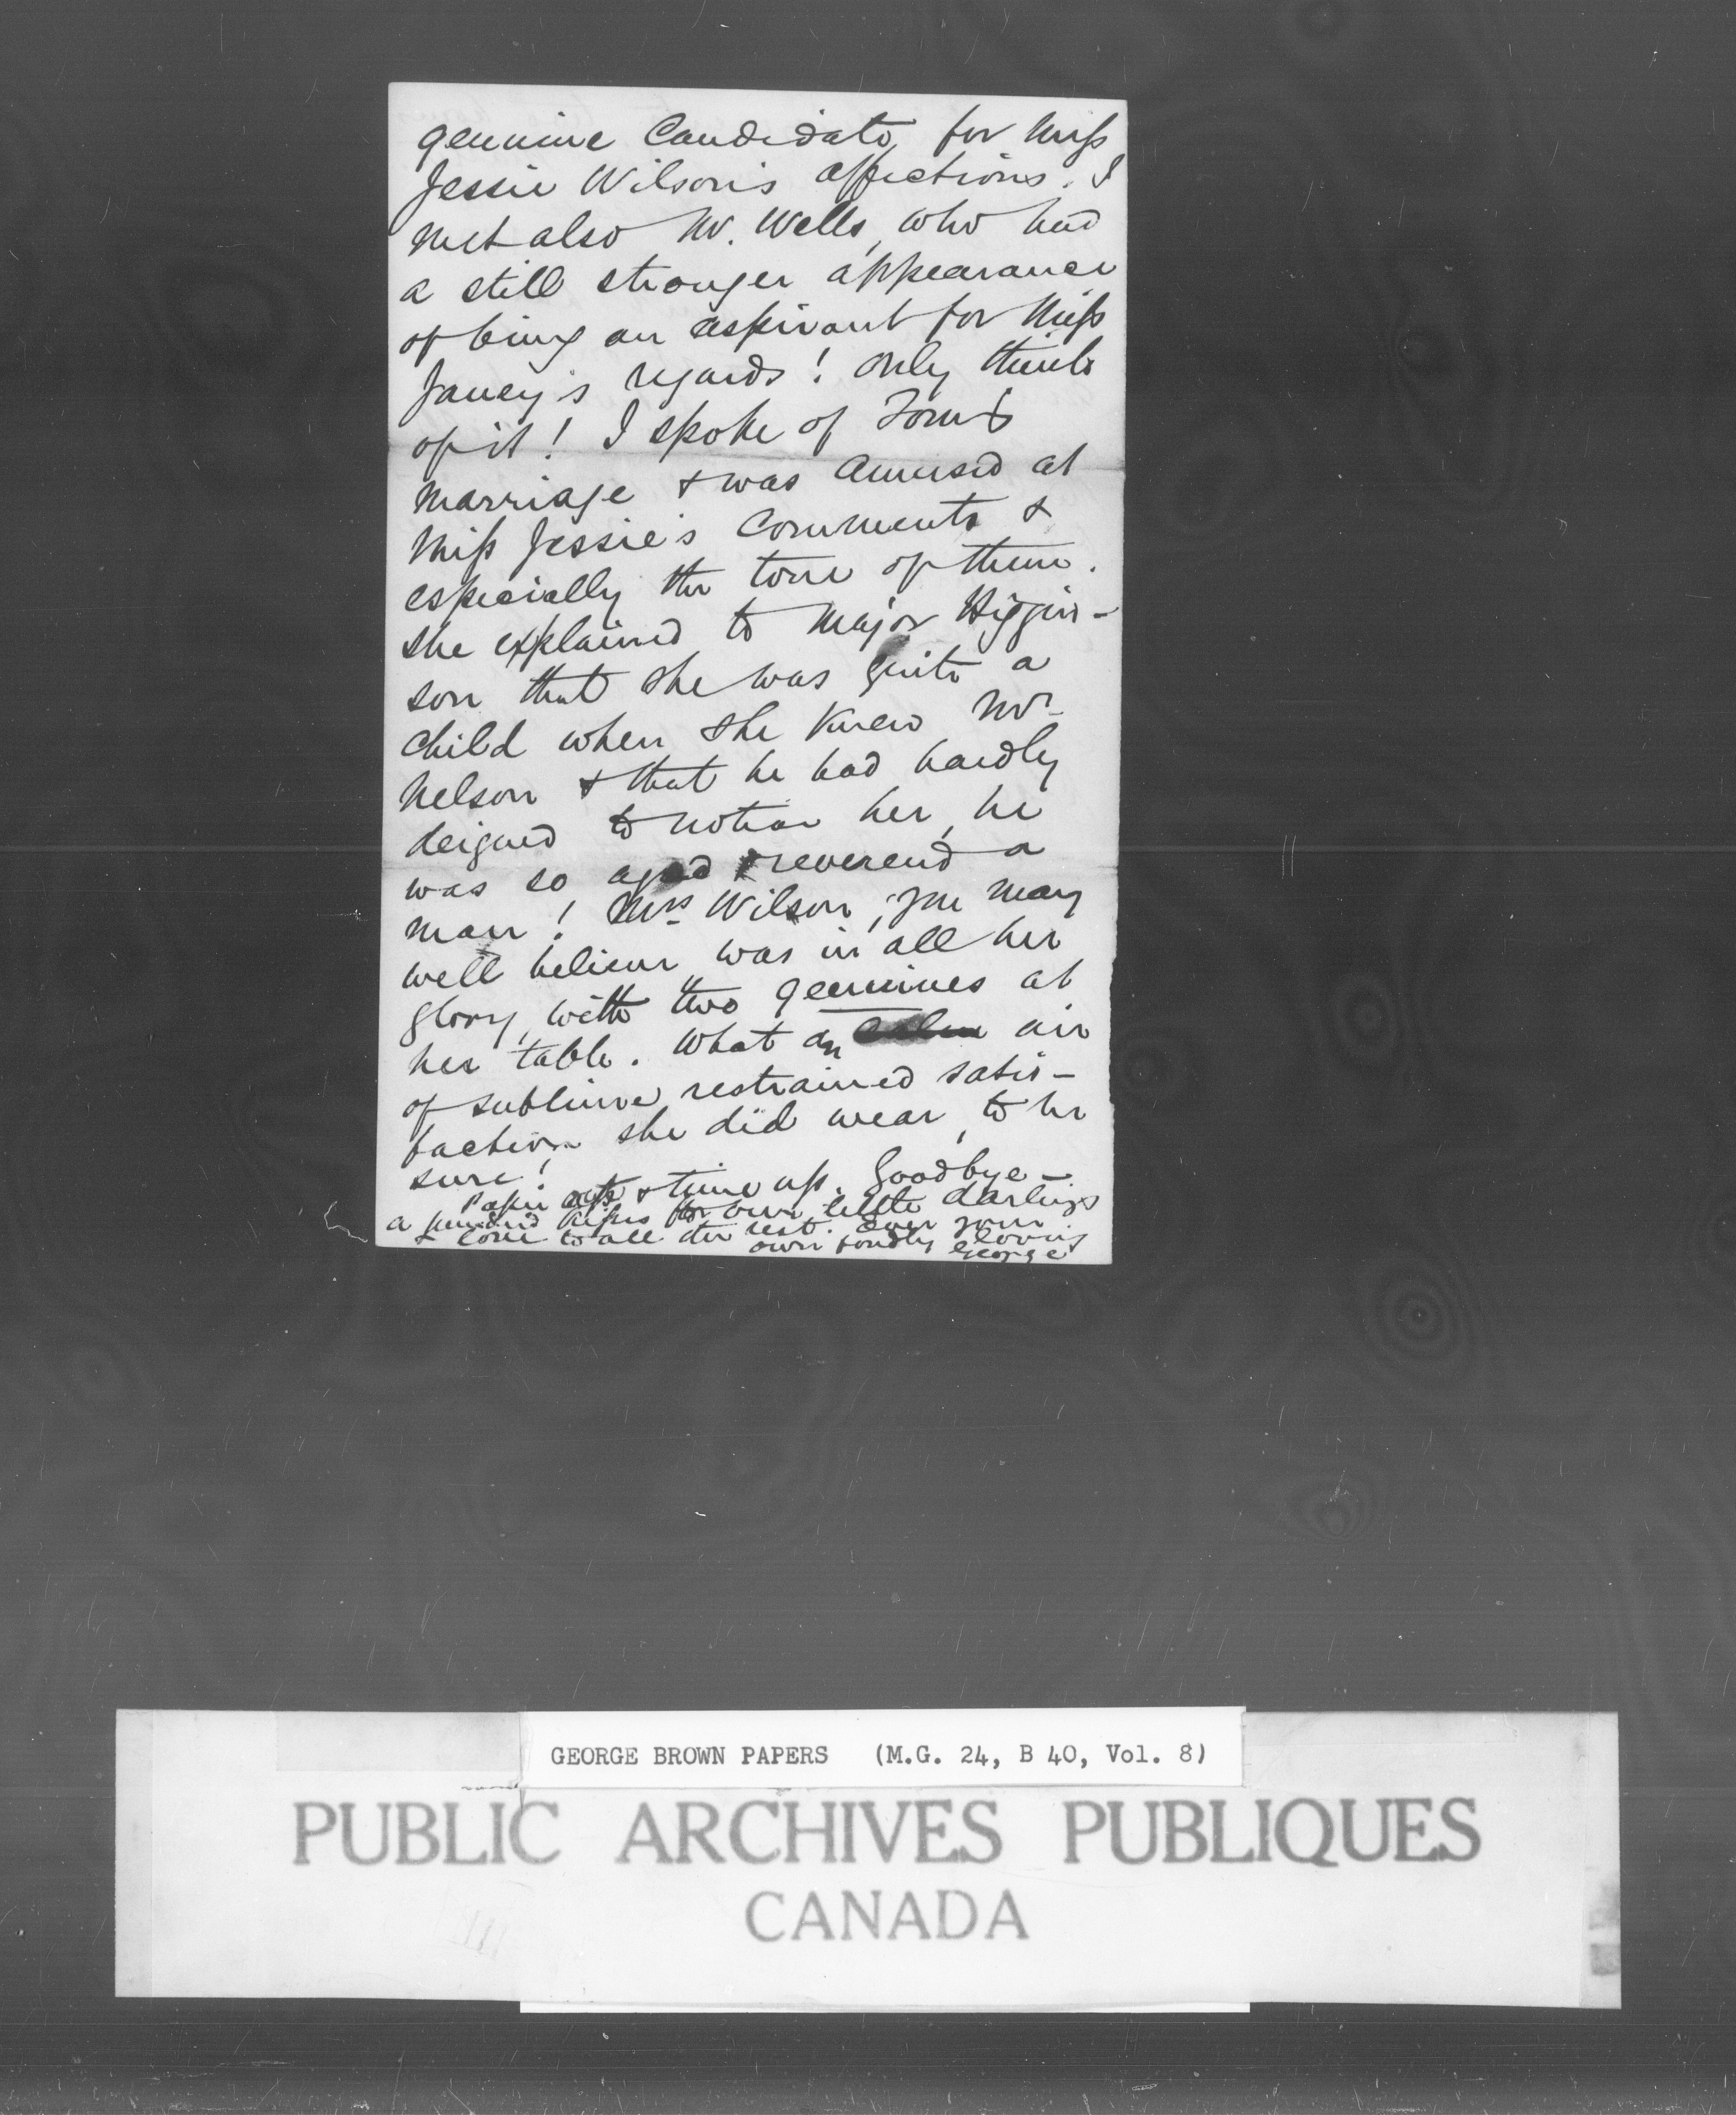 genuine Candidate, for Miss
Jessie Wilson's affections. I
met also Mr. Wells, who had
a still stronger appearance
of being an aspirant for Miss
Janey's regards! Only think
of it! I spoke of Tom's
marriage & was amused at
Miss Jessie's Comments &
especially the tone of them.
She explained to Major Higgin-
son that she was quite a
child when she knew Mr
Nelson & that he had hardly
deigned to notice her, he
was so aged & reverend a
man! Mrs Wilson, you may
well believe, was in all her
glory, with two genuines at
her table. What an calm air
of sublime, restrained satis-
faction she did wear, to be
sure!
Paper out & time up. Goodbye—
a hundred kisses for our little darlings
& love to all the rest. Ever your
own fondly loving
George
GEORGE BROWN PAPERS (M.G. 24, B 40, Vol. 8)
PUBLIC ARCHIVES PUBLIQUES
CANADA